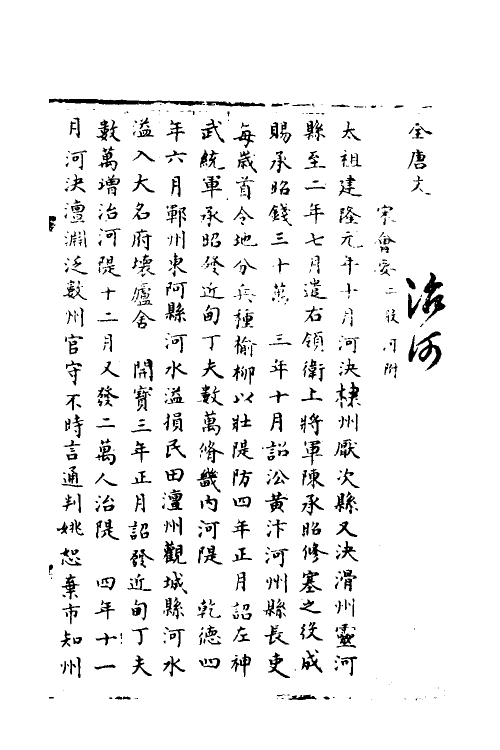 全唐文
宋會要二股河附
治河
太祖建隆元年十月河決棣州厭次縣又決滑州靈河
縣至二年七月遣右領衛上將軍陳承昭修塞之役成
賜承昭錢三十萬 三年十月詔㳂黃汴河州縣長吏
每歲首令地分兵種榆柳以壯隄防四年正月詔左神
武統軍承昭發近甸丁夫數萬脩畿內河隄 乾德四
年六月鄆州東阿縣河水溢損民田澶州觀城縣河水
溢入大名府壞廬舍 開寶三年正月詔發近甸丁夫
數萬增治河隄十二月又發二萬人治隄 四年十一
月河決澶淵泛數州官守不時言通判姚恕棄市知州